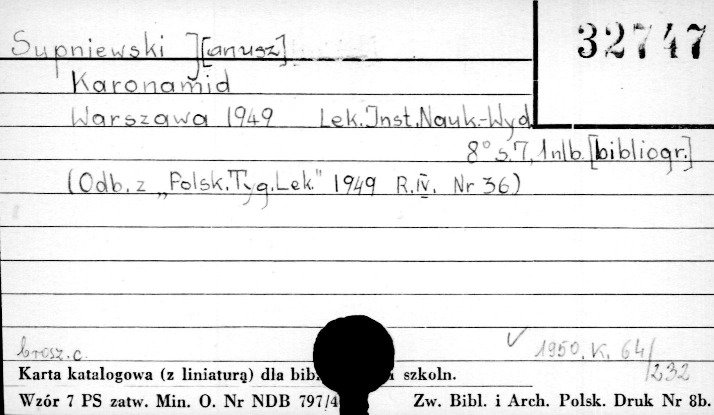 32747
Supniewski J[anusz]
Karonamid
Warszawa 1949 Lek.Inst.Nauk.-Wyd
8° s.7, 1nlb. [bibliogr.]
(Odb. z „Polsk.Tyg.Lek." 1949 R.IV. Nr 36)
brosz. c. ✓ 1950. K. 64/232
Karta katalogowa (z liniaturą) dla szkoln.
Wzór 7 PS zatw. Min. O. Nr NDB 797/4 Zw. Bibl. i Arch. Polsk. Druk Nr 8b.